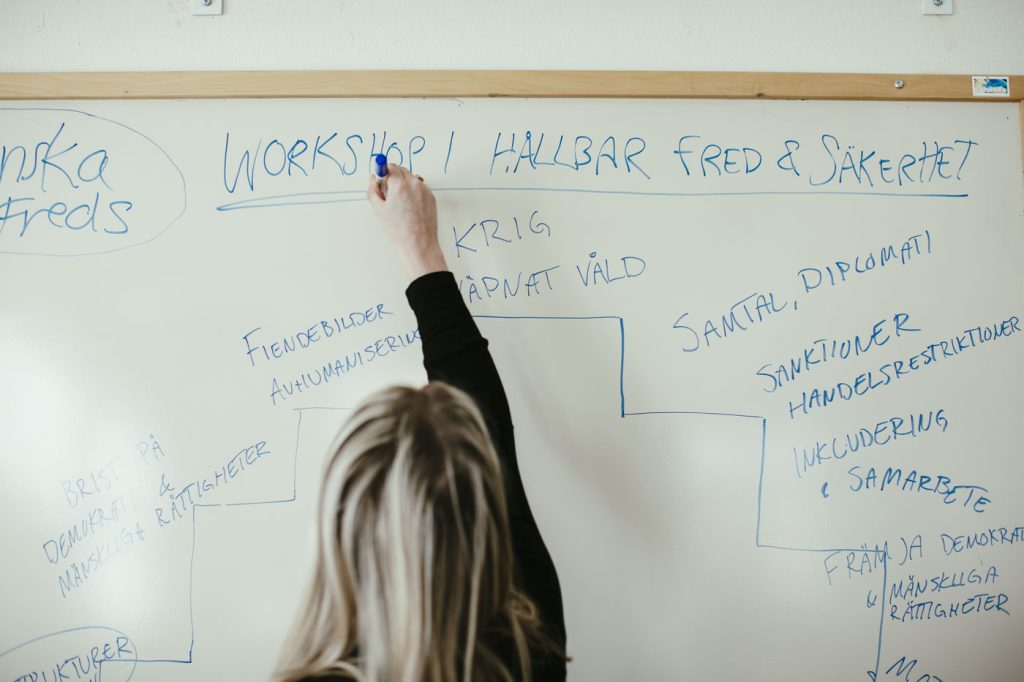 nska
Freds
WORKSHOP I HÅLLBAR FRED & SÄKERHET
KRIG
ÄPNAT VÅLD
FIENDEBILDER
AVHUMANISERING
BRIST PÅ
DEMOKRATI &
MÄNSKLIGA RÄTTIGHETER
TRUKTURER
SAMTAL, DIPLOMATI
SANKTIONER
HANDELSRESTRIKTIONER
INKLUDERING
& SAMARBETE
FRÄMJA DEMOKRAT
& MÄNSKLIGA
RÄTTIGHETER